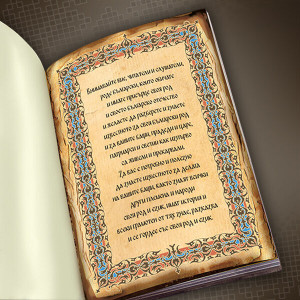 Внимавайте вие, читатели и слушатели,
роде български, които обичате
и имате присърце своя род
и своето българско отечество
и желаете да разберете и знаете
известното за своя български род
и за вашите бащи, прадеди и царе,
патриарси и светии как изпърво
са живели и прекарвали.
За вас е потребно и полезно
да знаете известното за делата
на вашите бащи, както знаят всички
други племена и народи
своя род и език, имат история
и всеки грамотен от тях знае, разказва
и се гордее със своя род и език.